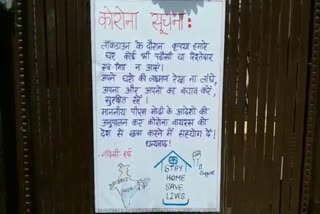 कोरोना सूचना :
लॉकडाउन के दौरान कृपया हमारे
घर कोई भी पड़ोसी या रिश्तेदार
एवं मित्र न आवें।
अपने घरों की लक्ष्मण रेखा ना लांघे,
अपना और अपनों का बचाव करें,
सुरक्षित रहें।
माननीय पीएम मोदी के आदेशों की
अनुपालना कर कोरोना वायरस को
देश से खत्म करने में सहयोग दें!
धन्यवाद!
STAY
HOME
SAVE
LIVES